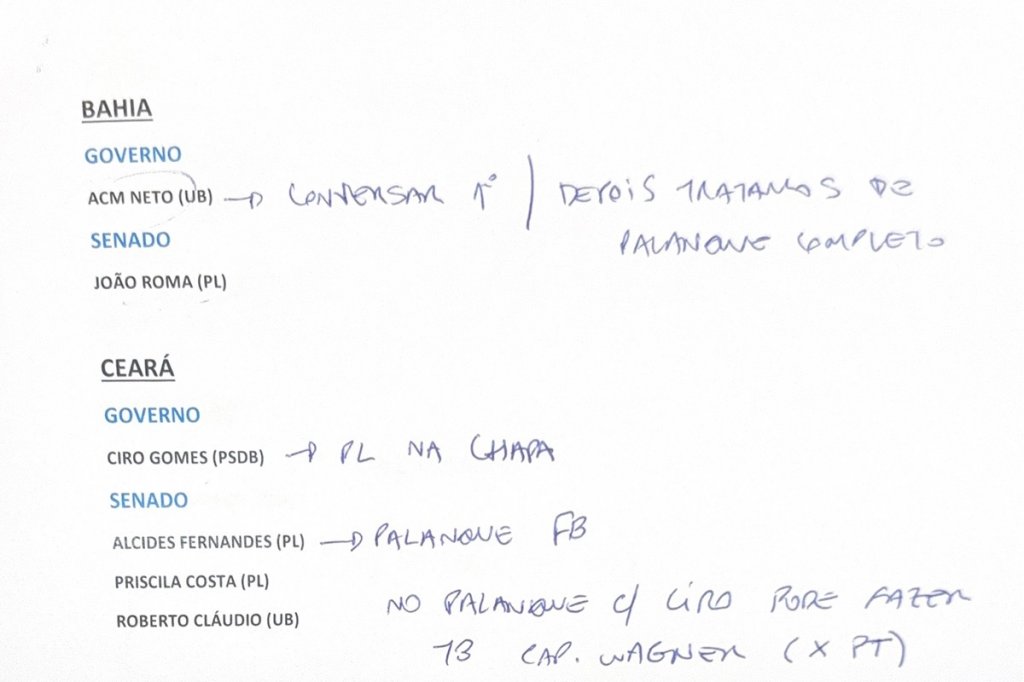 BAHIA
GOVERNO
ACM NETO (UB) → CONVERSAR 1º | DEPOIS TRATAMOS DE
PALANQUE COMPLETO
SENADO
JOÃO ROMA (PL)
CEARÁ
GOVERNO
CIRO GOMES (PSDB) → PL NA CHAPA
SENADO
ALCIDES FERNANDES (PL) → PALANQUE FB
PRISCILA COSTA (PL)
ROBERTO CLÁUDIO (UB)
NO PALANQUE C/ CIRO PODE FAZER
13 CAP. WAGNER (X PT)